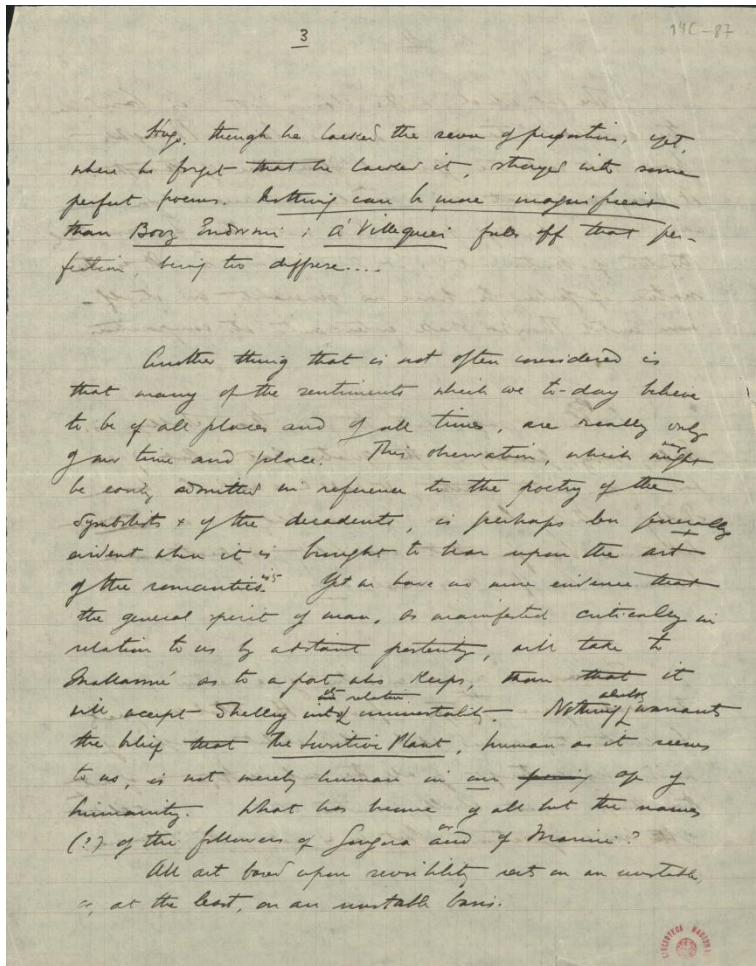 3
14C-87
Hugo, though he lacked the sense of proportion, yet,
where he forgot that he lacked it, strayed into some
perfect poems. Nothing can be more magnificent
than Booz Endormi; A Villequier falls off that per-
fection, being too diffuse....
Another thing that is not often considered is
that many of the sentiments which we to-day believe
to be of all places and of all times, are really only
of our time and place. This observation, which might
be easily admitted in reference to the poetry of the
symbolists & of the decadents, is perhaps less generally
evident when it is brought to bear upon the art
of the romantics. Yet we have no more evidence that
the general spirit of man, as manifested critically in
relation to us by a distant posterity, will take to
Mallarmé as to a poet who keeps, than that it
will accept Shelley into relative immortality. Nothing warrants
the belief that the Sensitive Plant, human as it seems
to us, is not merely human in our age of
humanity. What has become of all but the names
(?) of the followers of Gongora and of Marini?
All art based upon sensibility rests on an unstable,
or, at the least, on an unstable basis.
BIBLIOTECA NACIONAL